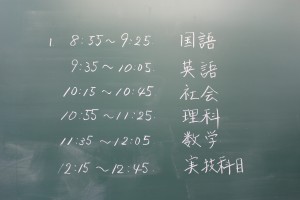 1 8:55～9:25 国語
9:35～10:05 英語
10:15～10:45 社会
10:55～11:25 理科
11:35～12:05 数学
12:15～12:45 実技科目